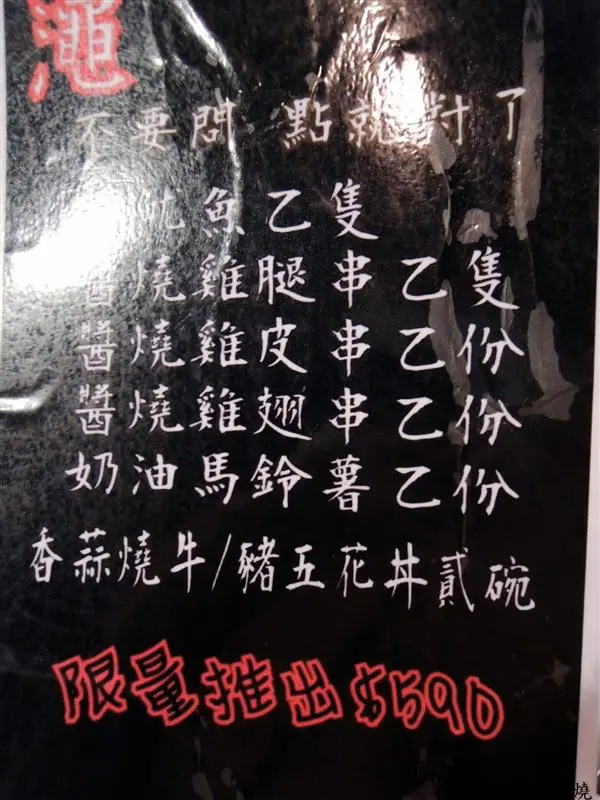 澠
不要問 點就對了
魚乙隻
醬燒雞腿串乙隻
醬燒雞皮串乙份
醬燒雞翅串乙份
奶油馬鈴薯乙份
香蒜燒牛/豬五花丼貳碗
限量推出$590
燒